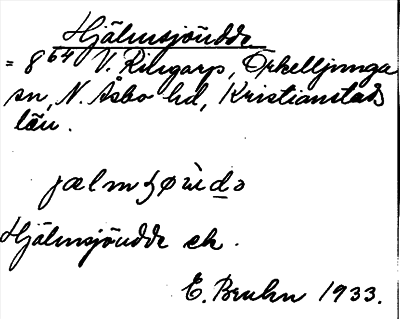 Hjälmsjöudde
= 8⁶⁴ V. Ringarp, Örkelljunga
sn, N. Åsbo hd, Kristianstads
län.
Hjälmsjöudde ek.
E. Bruhn 1933.